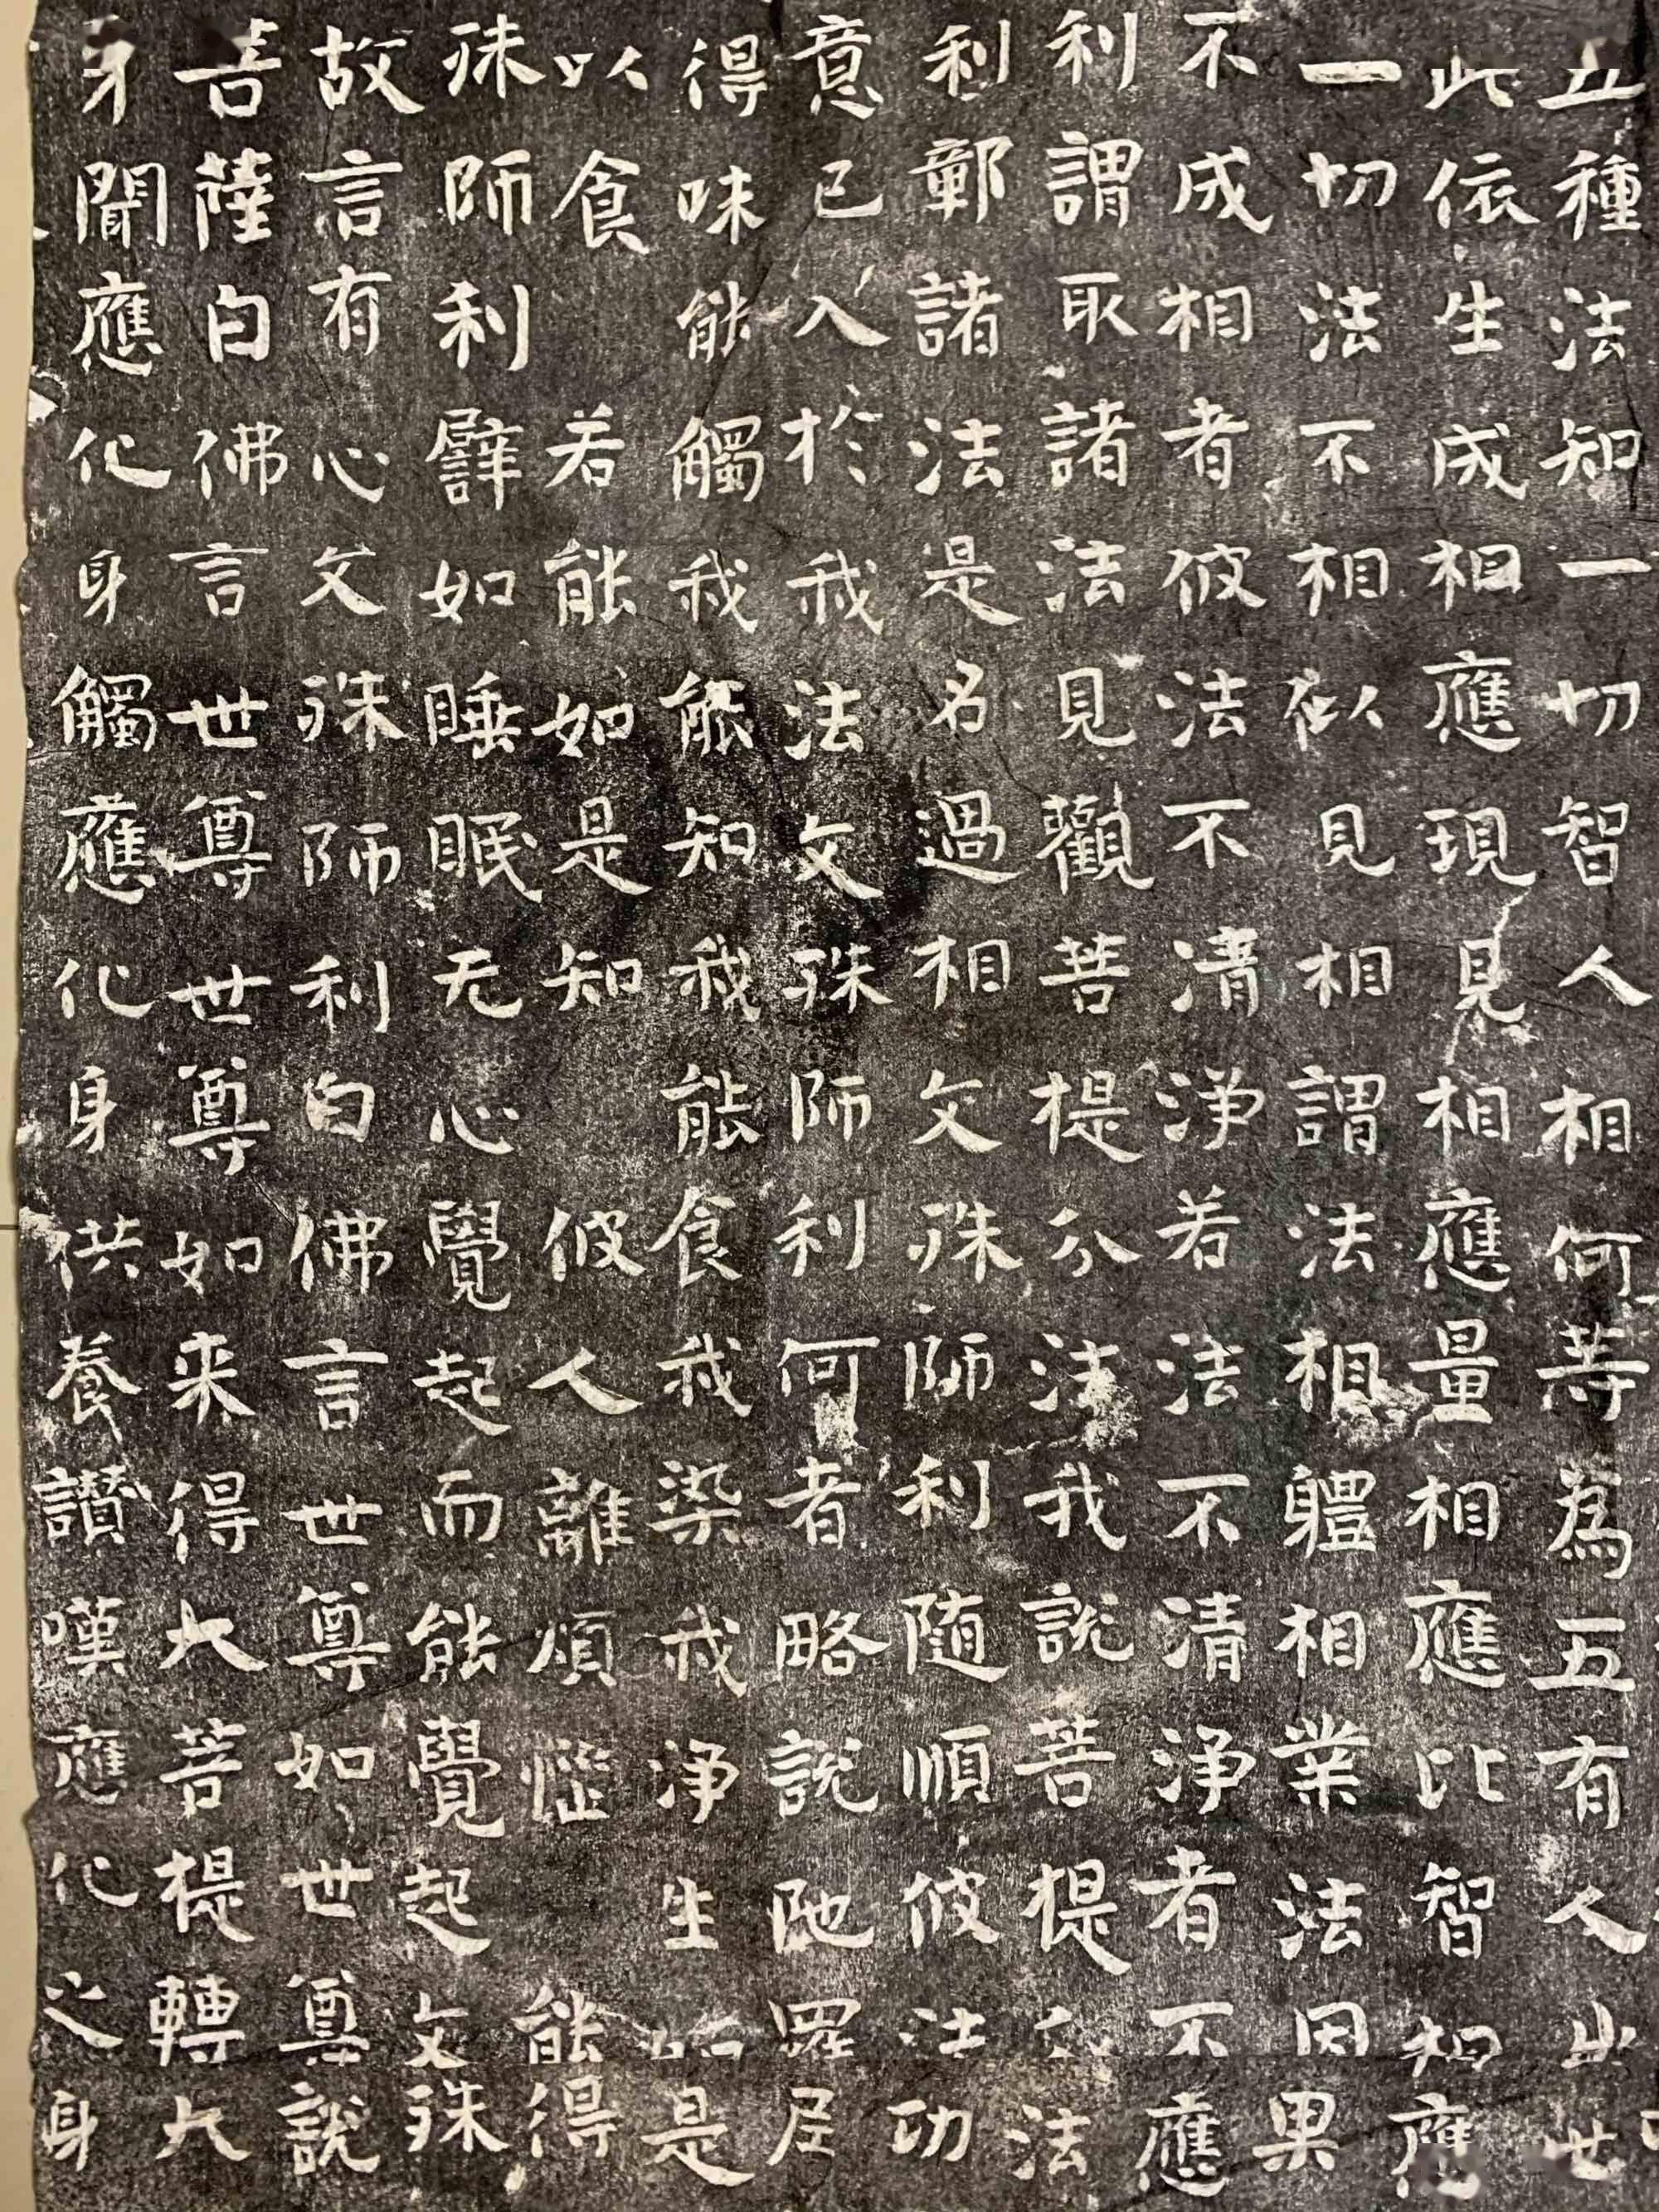 五種法知一切智人相何等為五有人出世
此依生成相應現見相應量相應比智相應
一切法不相似見相謂法相軆相業法因果
不成相者彼法不清淨若法不清淨者不應
利謂取諸法見觀菩提分法我說菩提分法
利鄣諸法是名過相文殊師利随順彼法功
意已入於我法文殊師利何者略說陁羅尼
得味能觸我能知我能食我染我淨生如是
以食 若能如是知 彼人離煩惱 能得
殊師利譬如睡眠无心覺起而能覺起文殊
故言有心文殊師利白佛言世尊如世尊說
菩薩白佛言世尊世尊如来得大菩提轉大
身聞應化身觸應化身供養讃嘆應化之身